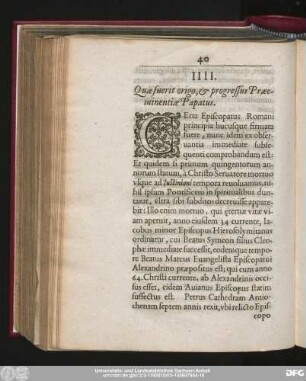 40
IIII.
Quæ fuerit origo, & progressus Præe-
minentiæ Papatus.
CErte Episcopatus Romani
principia hucusque firmata
fuere, nunc idem ex obser-
vantia immediate subse-
quenti comprobandum est:
Et quidem si primum quingentorum an-
norum statum, à Christo Servatore mortuo
usque ad Iustiniani tempora revoluamus, ni-
hil ipsum Pontificem in spiritualibus dun-
taxat, ultra sibi subditos decrevisse appare-
bit: Illo enim mortuo, qui
aperuit, anno eiusdem 34 currente, Ia-
cobus minor Episcopus Hierosolymitanus
ordinatur, cui Beatus Symeon filius Cleo-
phæ immediate successit, eodemque tempo-
re Beatus Marcus Euangelista Episcopatui
Alexandrino præpositus est; qui cum anno
64. Christi currente, ab Alexandrinis occi-
sus esset, eidem Avianus Episcopus statim
suffectus est. Petrus Cathedram Antio-
chenam septem annis rexit, ubi relicto Epis-
copo
Universitäts- und Landesbibliothek Sachsen-Anhalt